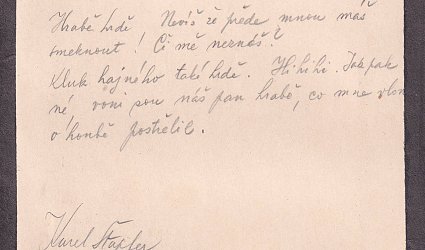 Hrabě hrdě Nevíš že přede mnou máš
smeknout! Či mě neznáš?
Kluk hajného také hrdě. Hihihi. Jakpak
né, voni sou náš pan hrabě, co mne vloni
o honbě postřelil.
Karel Štapfer